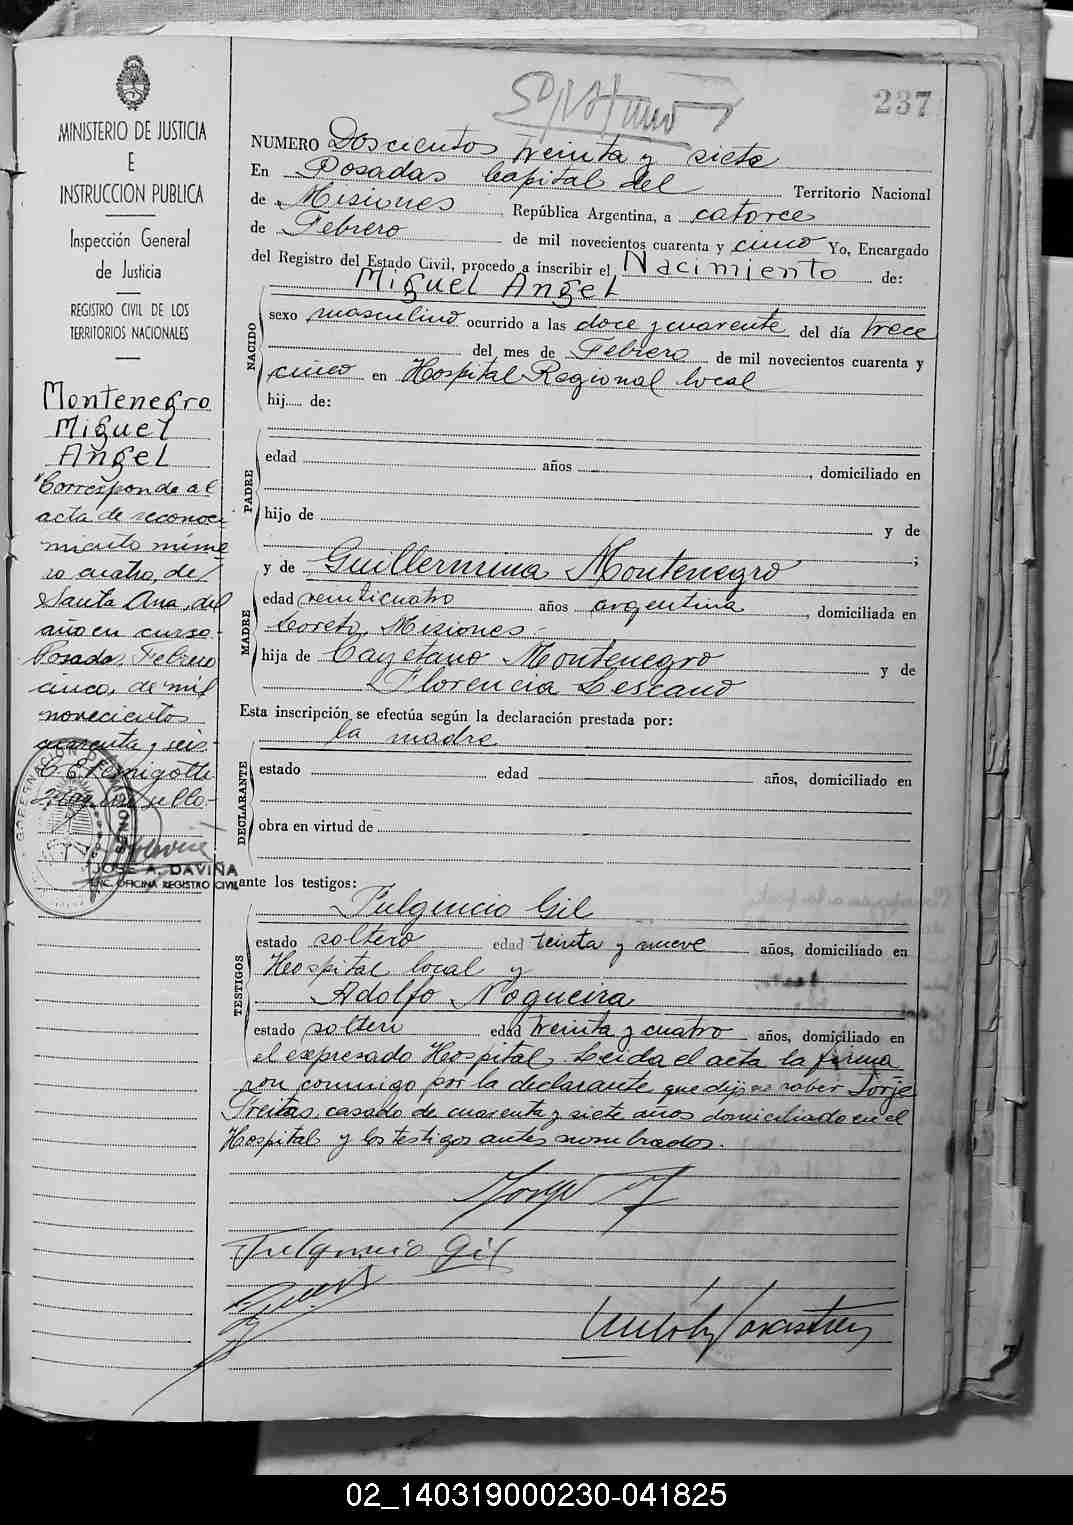 237
MINISTERIO DE JUSTICIA
E
INSTRUCCION PUBLICA
Inspección General
de Justicia
REGISTRO CIVIL DE LOS
TERRITORIOS NACIONALES
Montenegro
Miguel
Angel
Corresponde al
acta de reconoci
miento núme
ro cuatro, de
Santa Ana, del
año en curso.
Posadas, Febrero
cinco, de mil
novecientos
cuarenta y seis.
GOBERNACION DE MISIONES
JOSE A. DAVIÑA
ENC. OFICINA REGISTRO CIVIL
NUMERO Doscientos treinta y siete
En Posadas Capital del Territorio Nacional
de Misiones República Argentina, a catorce
de Febrero de mil novecientos cuarenta y cinco Yo, Encargado
del Registro del Estado Civil, procedo a inscribir el Nacimiento de:
Miguel Angel
NACIDO
sexo masculino ocurrido a las doce y cuarenta del día trece
del mes de Febrero de mil novecientos cuarenta y
cinco en Hospital Regional local
hij..... de:
PADRE
edad años , domiciliado en
hijo de y de
;
y de Guillermina Montenegro
MADRE
edad veinticuatro años argentina , domiciliada en
Loreto, Misiones-
hija de Cayetano Montenegro y de
Florencia Lescano
Esta inscripción se efectúa según la declaración prestada por:
la madre
DECLARANTE
estado edad años, domiciliado en
obra en virtud de
ante los testigos:
TESTIGOS
Fulgencio Gil
estado soltero edad treinta y nueve años, domiciliado en
Hospital local y
Adolfo Nogueira
estado soltero edad treinta y cuatro años, domiciliado en
el expresado Hospital. Leida el acta la firma
ron conmigo por la declarante que dijo no saber Jorje
Freitas, casado de cuarenta y siete años domiciliado en el
Hospital y los testigos antes nombrados.
Fulgencio Gil
02_140319000230-041825